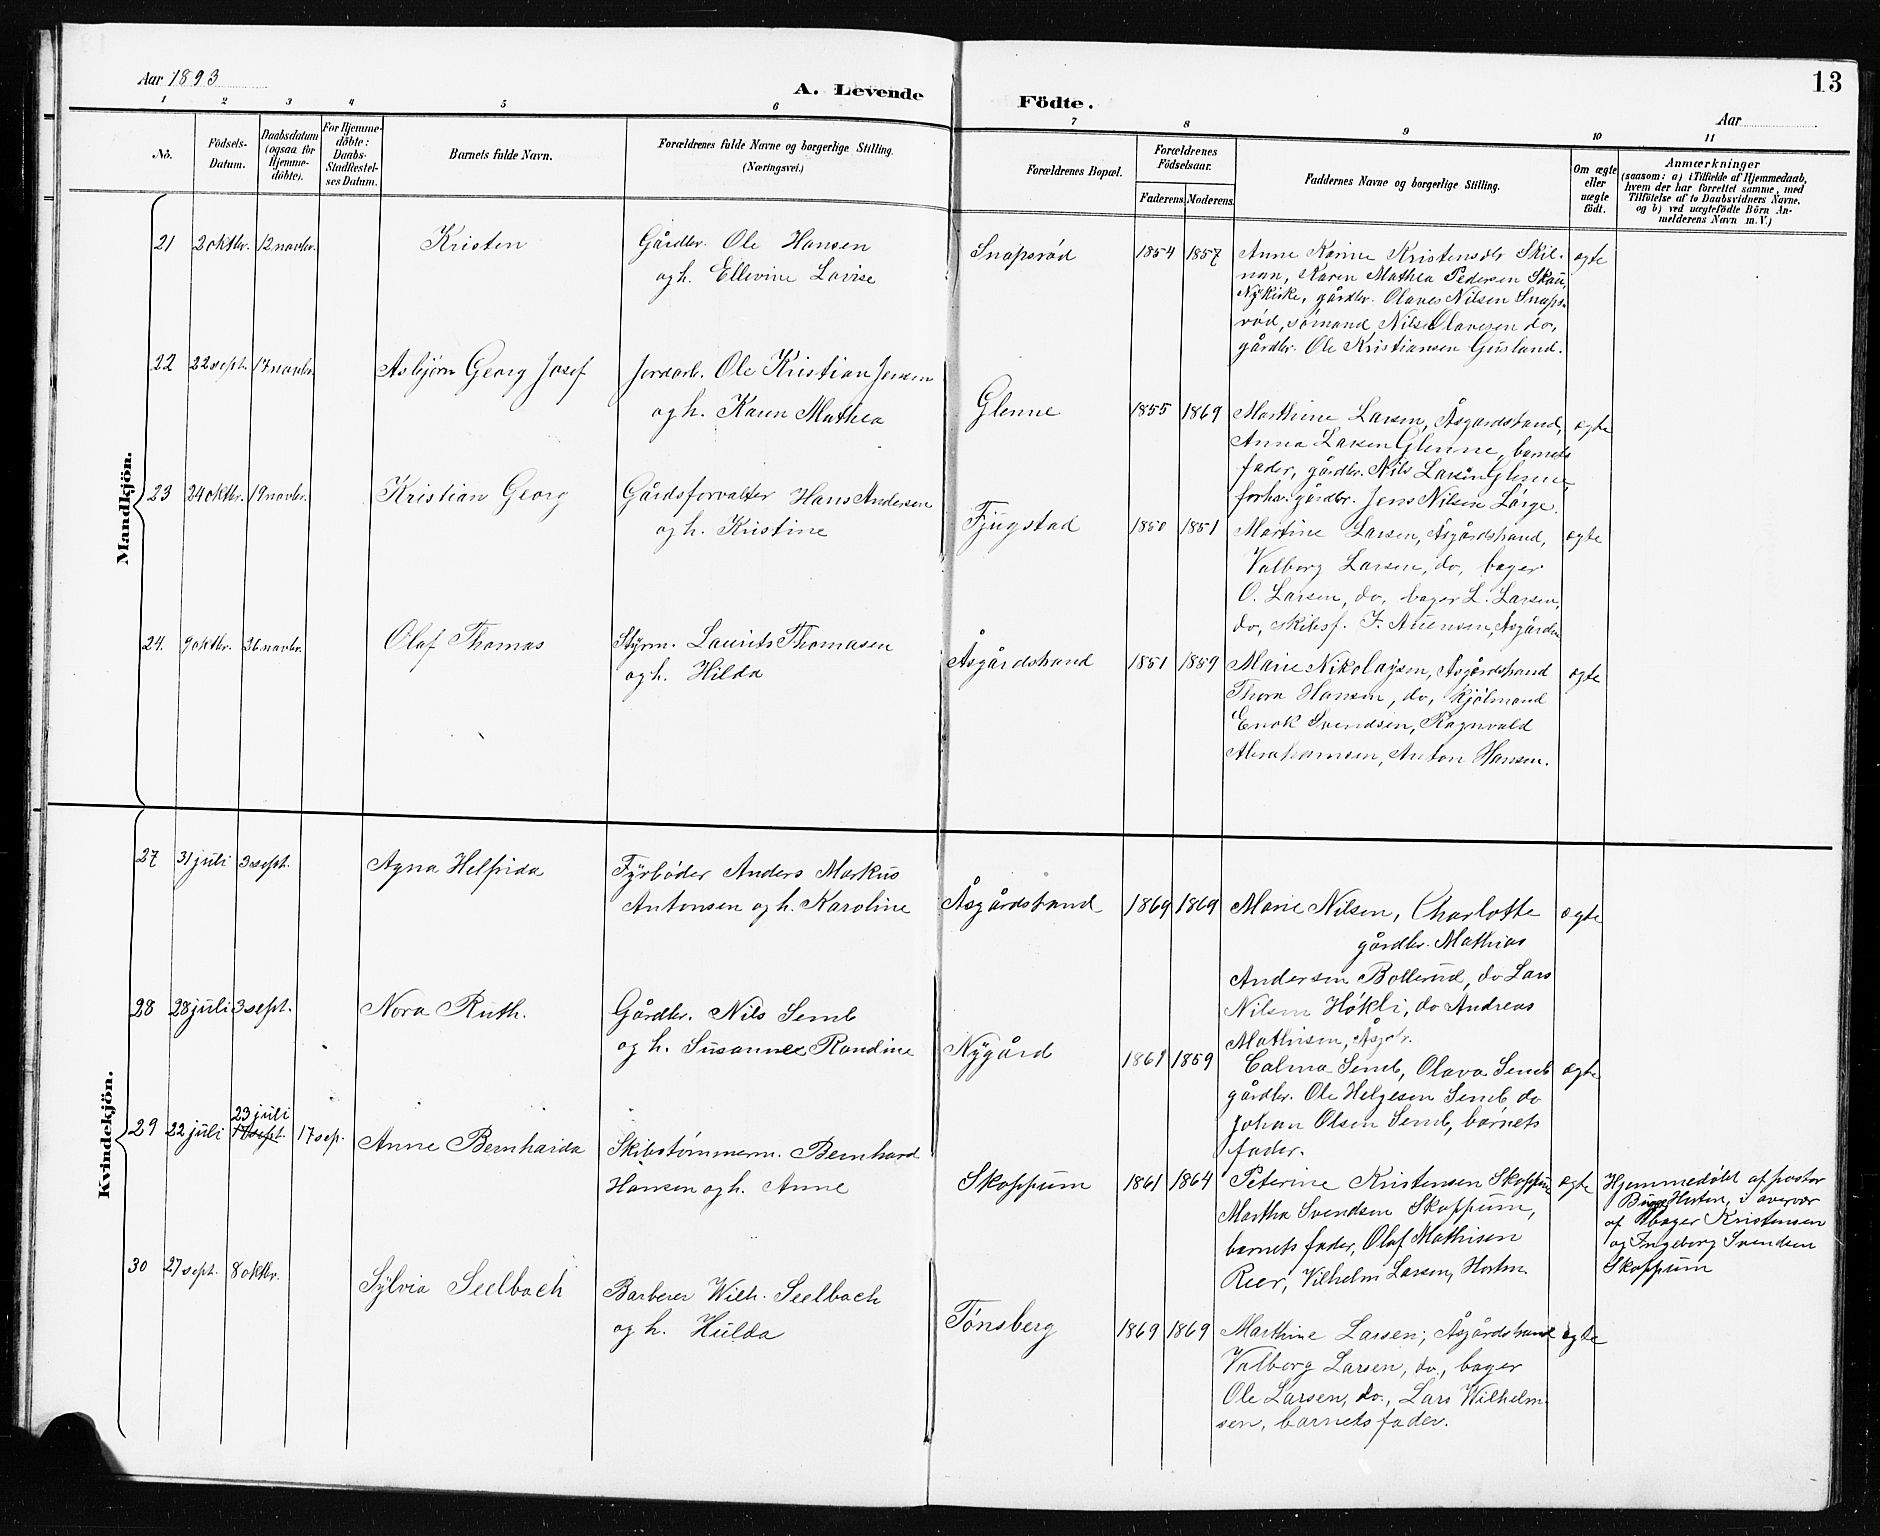 Aar 1893
A. Levende Födte.
13
Aar
1 2 3 4 5 6 7 8 9 10 11
No.
Födsels-Datum.
Daabsdatum (ogsaa for Hjemme-döbte).
For Hjemme-döbte: Daabs-Stadfæstel-ses Datum.
Barnets fulde Navn.
Forældrenes fulde Navne og borgerlige Stilling. (Næringsvei.)
Forældrenes Bopæl.
Forældrenes Födselsaar.
Faderens. Moderens.
Faddernes Navne og borgerlige Stilling.
Om ægte eller uægte födt.
Anmærkninger
(saasom: a) i Tilfælde af Hjemmedaab,
hvem der har forrettet samme, med
Tilföielse af to Daabsvidners Navne,
og b) ved uægtefödte Börn An-
melderens Navn m. V.)
Mandkjön.
21 2 oktbr. 12 novbr. Kristen
Gårdbr. Ole Hansen
og h. Ellevine Lovise
Snapsrød 1854 1857
Anne Karine Kristensdtr Skil-
nan, Karen Mathea Pedersen Skau,
Nykirke, gårdbr. Olaves Nilsen Snaps-
rød, sömand Nils Olavesen do,
gårdbr. Ole Kristiansen Gusland.
ægte
22 22 sept. 17 novbr. Asbjørn Georg Josef
Jordarb. Ole Kristian Jensen
og h. Karen Mathea
Glenne 1855 1869
Marthine Larsen, Åsgardstrand,
Anna Larsen Glenne, barnets
fader, gårdbr. Nils Larsen Glenne,
forhv. gårdbr. Jens Nilsen Lørge.
ægte
23 24 oktbr. 19 novbr. Kristian Georg
Gårdsforvalter Hans Andersen
og h. Kristine
Fjugstad 1850 1851
Martine Larsen, Åsgårdstrand,
Valborg Larsen, do, bager
O. Larsen, do, bager L. Larsen,
do, skibsf. J. Auensen, Åsgårdstr
ægte
24. 9 oktbr. 26 novbr. Olaf Thomas
Styrm. Laurits Thomasen
og h. Hilda
Åsgårdstrand 1851 1859
Marie Nikolaysen, Åsgårdstrand
Thora Hansen, do, kjölmand
Enok Svendsen, Ragnvald
Abrahamsen, Anton Hansen.
ægte
Kvindekjön.
27 31 juli 3 sept. Agna Helfrida
Fyrbøder Anders Markus
Antonsen og h. Karoline
Åsgårdstrand 1869 1869
Marie Nilsen, Charlotte
gårdbr. Mathias
Andersen Bollerud, do Lars
Nilsen Høkli, do Andreas
Mathisen, Åsgbr.
ægte
28 28 juli 3 sept. Nora Ruth.
Gårdbr. Nils Semb
og h. Susanne Randine
Nygård 1861 1859
Calma Semb, Olava Semb
gårdbr. Ole Helgesen Semb, do
Johan Olsen Semb, barnets
fader.
ægte
29 22 juli 23 juli 17 sept. 17 sep. Anne Bernharda
Skibstømmerm. Bernhard
Hansen og h. Anne
Skoppum 1861 1864
Peterine Kristensen Skoppum
Martha Svendsen Skoppum,
barnets fader, Olaf Mathisen
Reer, Vilhelm Larsen, Horten
ægte
Hjemmedøbt af pastor
Bugge Horten, i overvær
af bager Kristensen
og Ingeborg Svendsen
Skoppum
30 27 sept. 8 oktbr. Sylvia Seelbach
Barberer Wilh. Seelbach
og h. Hulda
Tønsberg 1869 1869
Marthine Larsen, Åsgårdstrand
Valborg Larsen, do., bager
Ole Larsen, do., Lars Wilhelm-
sen, barnets fader.
ægte